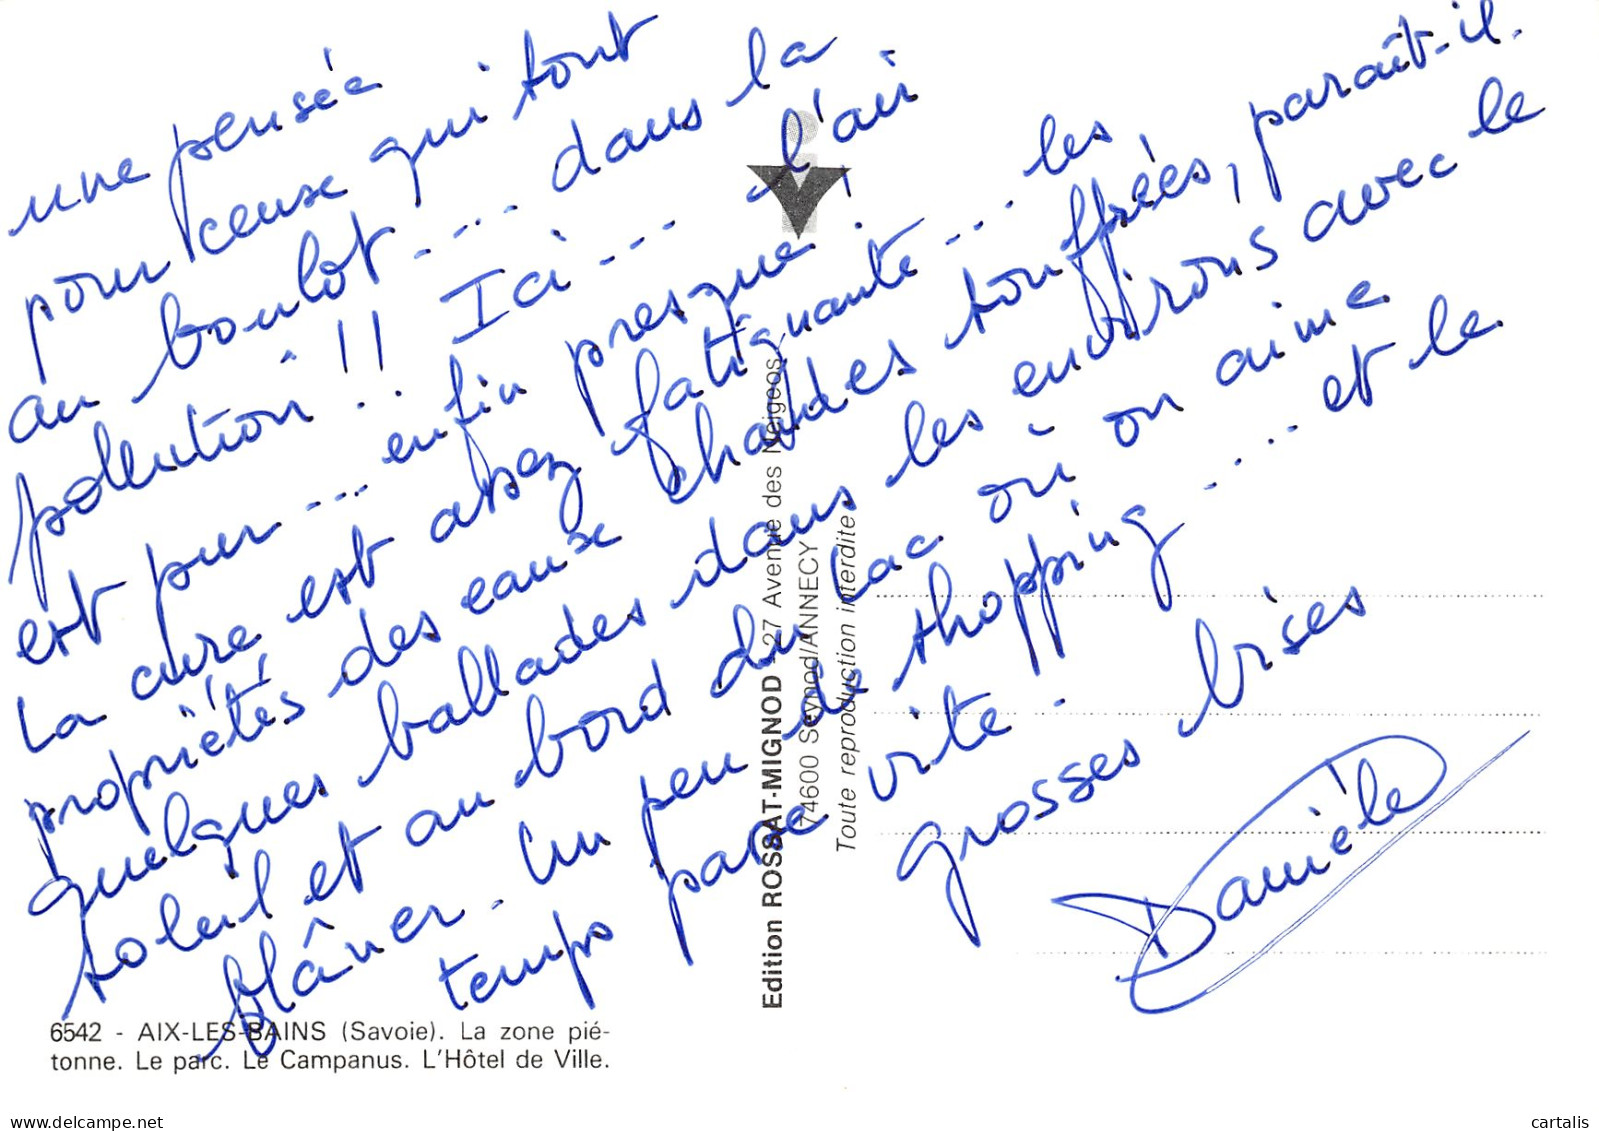 une pensée
pour ceux qui sont
au boulot.... dans la
pollution !! Ici... l'air
est pur... enfin presque !
La cure est assez fatiguante... les
propriétés des eaux chaudes souffrées, paraît-il.
quelques ballades dans les environs avec le
soleil et au bord du lac où on aime
flâner. Un peu de shopping.... et le
temps passe vite.
grosses bises
Danièle
Edition ROSSAT-MIGNOD - 27 Avenue des Neigeos
74600 Seynod/ANNECY
Toute reproduction interdite
6542 - AIX-LES-BAINS (Savoie). La zone pié-
tonne. Le parc. Le Campanus. L'Hôtel de Ville.
delcampe.net
cartalis